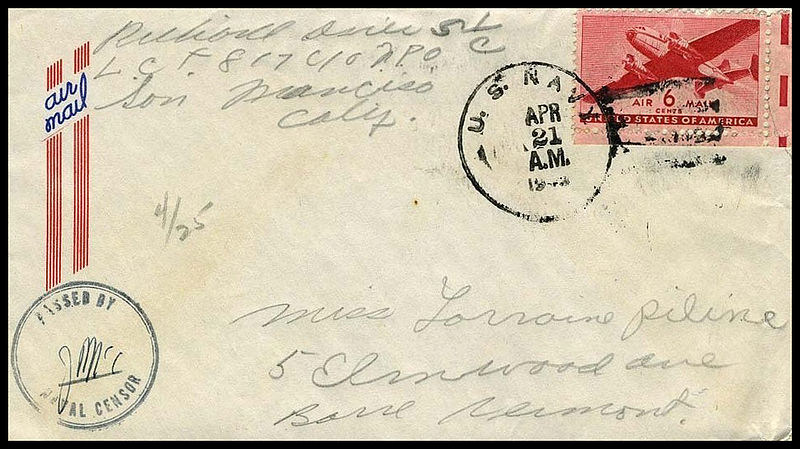 Richard S 1/c
L.C.F 817 c/o F.P.O
San Francisco
Calif.
air
mail
U.S. NAVY
APR
21
A.M.
AIR 6 MAIL
CENTS
UNITED STATES OF AMERICA
4/25
PASSED BY
NAVAL CENSOR
Miss Lorraine Piline
5 Elmwood ave
Barre Vermont.